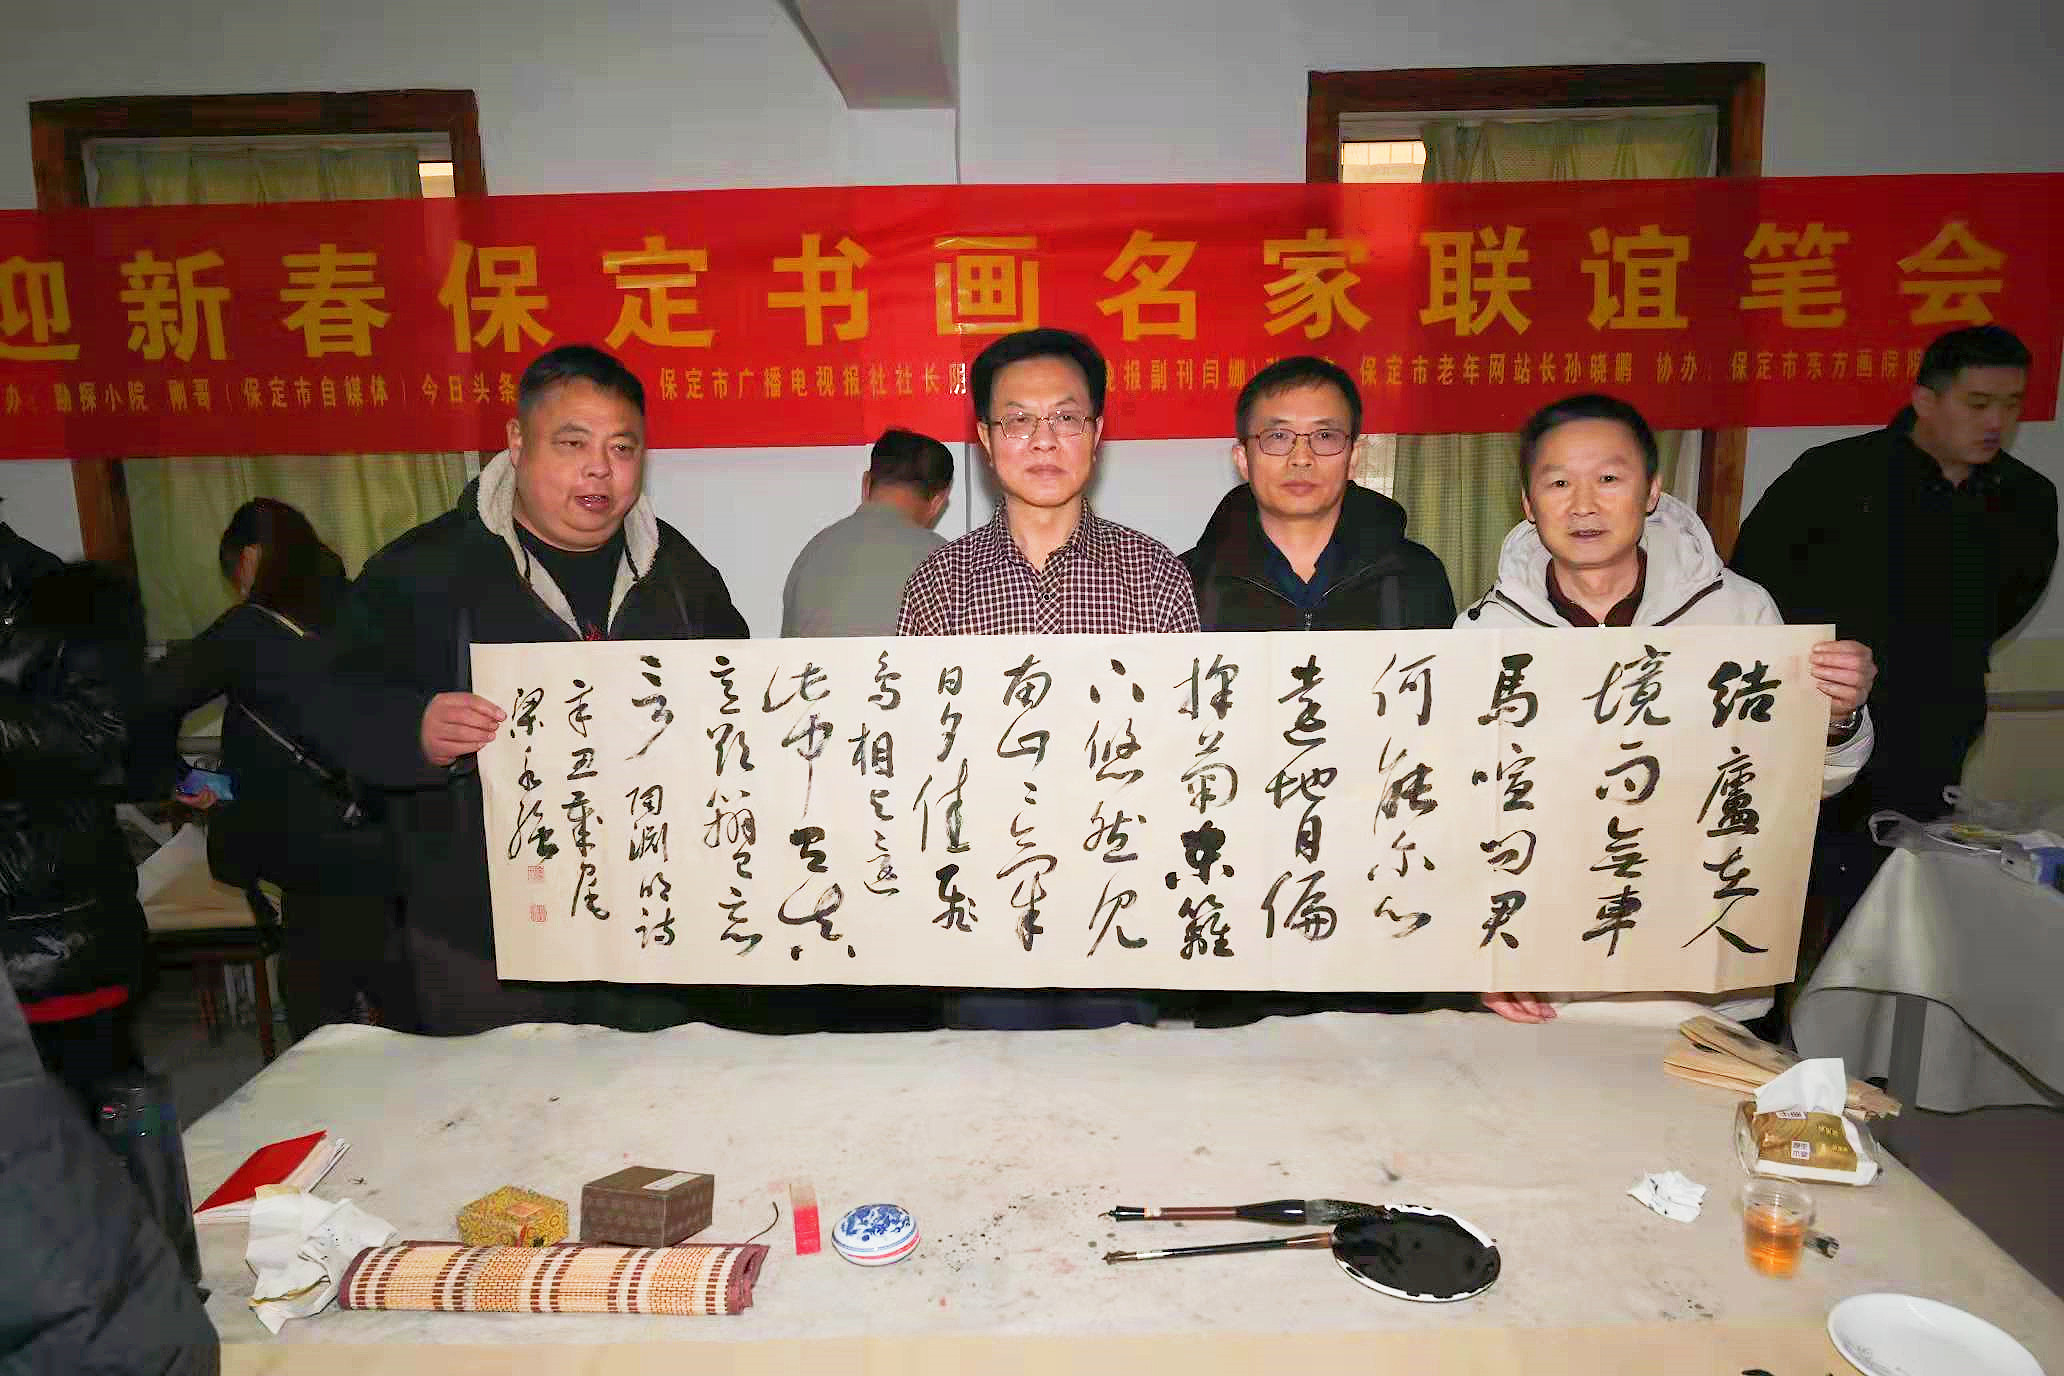 迎新春保定书画名家联谊笔会
办：勘探小院 刚哥（保定市自媒体）今日头条 保定市广播电视报社社长阴 晚报副刊闫娜） 保定市老年网站长孙晓鹏 协办：保定市东方画院院
结廬在人
境而無車
馬喧问君
何能尔心
遠地自偏
採菊东籬
下悠然见
南山〻氣
日夕佳飛
鸟相与还
此中有真
意欲辨已忘
言 陶渊明诗
辛丑岁尾
梁永强